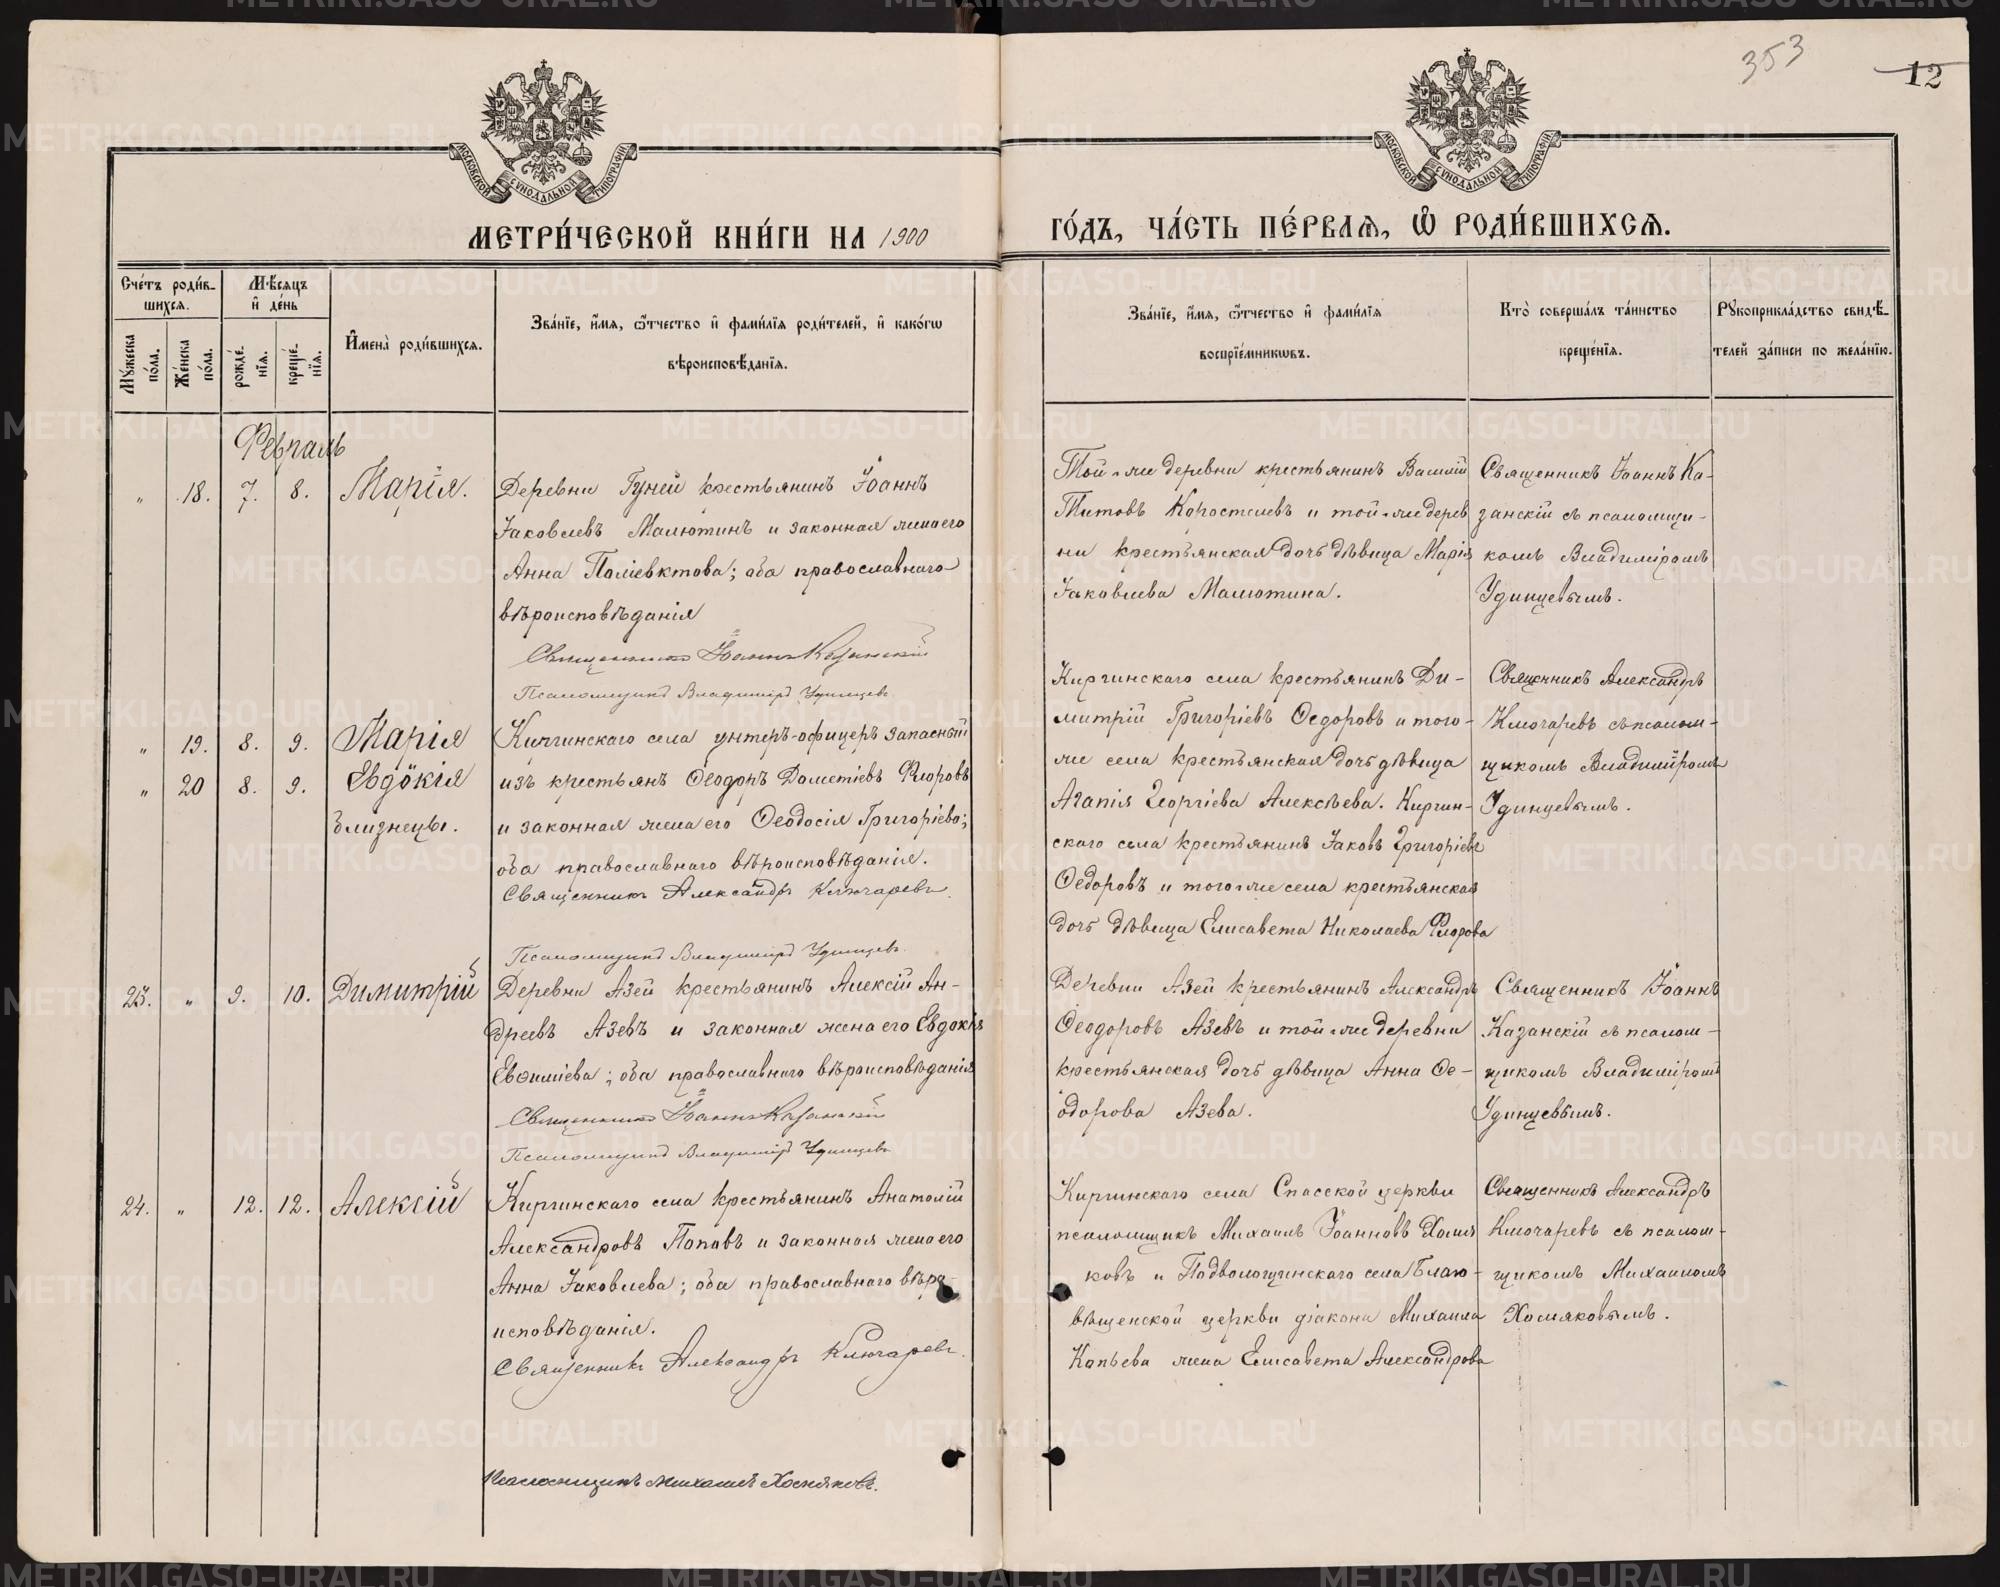 353
12
МОСКОВСКОЙ СУНОДАЛЬНОЙ ТИПОГРАФІИ
МОСКОВСКОЙ СУНОДАЛЬНОЙ ТИПОГРАФІИ
МЕТРИ́ЧЕСКОЙ КНИ́ГИ НА 1900
ГО́ДЪ, ЧА́СТЬ ПЕ́РВАѦ, Ѡ҆ РОДИ́ВШИХСѦ.
Сче́тъ роди́в-
шихсѧ.
Мꙋ́жеска по́ла.
Же́нска по́ла.
Мѣ́сѧцъ
и҆ де́нь
рожде́-
нїѧ.
креще́-
нїѧ.
И҆мена̀ роди́вшихсѧ.
Зва́нїе, и҆́мѧ, ѻ҆́тчество и҆ фами́лїѧ роди́телей, и҆ како́гѡ
вѣроисповѣ́данїѧ.
Зва́нїе, и҆́мѧ, ѻ҆́тчество и҆ фами́лїѧ
воспрїе́мникѡвъ.
Кто̀ соверша́лъ та́инство
креще́нїѧ.
Рꙋкоприкла́дство свидѣ́-
телей за́писи по жела́нїю.
Февраль
„ 18. 7. 8. Марія.
Деревни Гуней крестьянинъ Іоаннъ
Іаковлевъ Малютинъ и законная жена его
Анна Поліевктова; оба православнаго
вѣроисповѣданія
Священникъ Іоаннъ Казанскій
Псаломщикъ Владиміръ Удинцевъ.
Той-же деревни крестьянинъ Василій
Титовъ Коростелевъ и той-же дерев
ни крестьянская дочь дѣвица Марія
Іаковлева Малютина.
Священникъ Іоаннъ Ка-
занскій съ псаломщи-
комъ Владиміромъ
Удинцевымъ.
„ 19. 8. 9. Марія
„ 20 8. 9. Евдокія
близнецы.
Киргинскаго села унтеръ-офицеръ запасный
изъ крестьянъ Ѳеодоръ Дометіевъ Флоровъ
и законная жена его Ѳеодосія Григоріева;
оба православнаго вѣроисповѣданія.
Священникъ Александръ Ключаревъ.
Псаломщикъ Владиміръ Удинцевъ.
Киргинскаго села крестьянинъ Ди-
митрій Григоріевъ Ѳедоровъ и того-
же села крестьянская дочь дѣвица
Агапія Георгіева Алексѣева. Киргин-
скаго села крестьянинъ Іаковъ Григоріевъ
Ѳедоровъ и того-же села крестьянская
дочь дѣвица Елисавета Николаева Флорова
Священникъ Александръ
Ключаревъ съ псалом-
щикомъ Владиміромъ
Удинцевымъ.
23. „ 9. 10. Димитрій
Деревни Азей крестьянинъ Алексій Ан-
дреевъ Азевъ и законная жена его Евдокія
Евѳиміева; оба православнаго вѣроисповѣданія
Священникъ Іоаннъ Казанскій
Псаломщикъ Владиміръ Удинцевъ
Деревни Азей крестьянинъ Александръ
Ѳеодоровъ Азевъ и той-же деревни
крестьянская дочь дѣвица Анна Ѳе-
одорова Азева.
Священникъ Іоаннъ
Казанскій съ псалом-
щикомъ Владиміромъ
Удинцевымъ.
24. „ 12. 12. Алексій
Киргинскаго села крестьянинъ Анатолій
Александровъ Поповъ и законная жена его
Анна Іаковлева; оба православнаго вѣро-
исповѣданія.
Священникъ Александръ Ключаревъ.
Псаломщикъ Михаилъ Хомяковъ.
Киргинскаго села Спасской церкви
псаломщикъ Михаилъ Іоанновъ Хомя
ковъ и Подволошинскаго села Благо-
вѣщенской церкви діакона Михаила
Копьева жена Елисавета Александрова
Священникъ Александръ
Ключаревъ съ псалом-
щикомъ Михаиломъ
Хомяковымъ.
METRIKI.GASO-URAL.RU